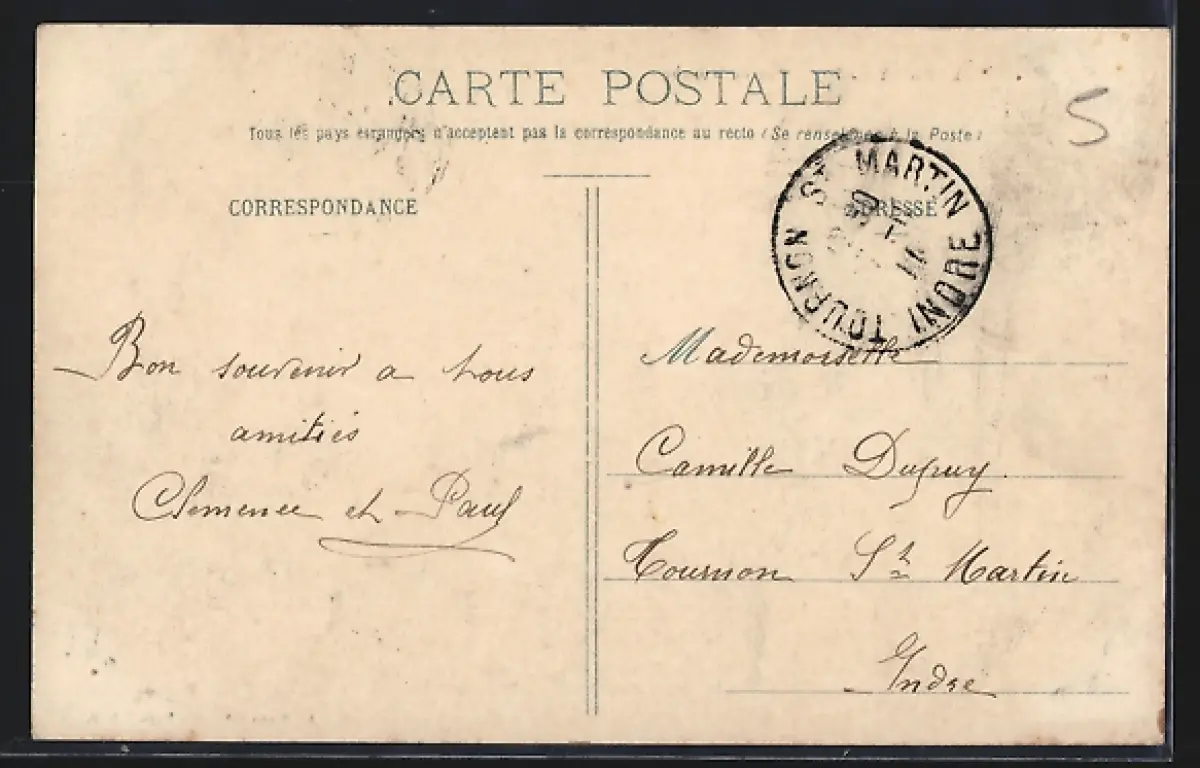 CARTE POSTALE
5
Tous les pays étrangers n'acceptent pas la correspondance au recto (Se renseigner à la Poste)
CORRESPONDANCE
ADRESSE
TOURNON ST MARTIN INDRE
Bon souvenir a tous
amitiés
Clemence et Paul
Mademoiselle
Camille Dupuy.
Tournon St Martin
Indre